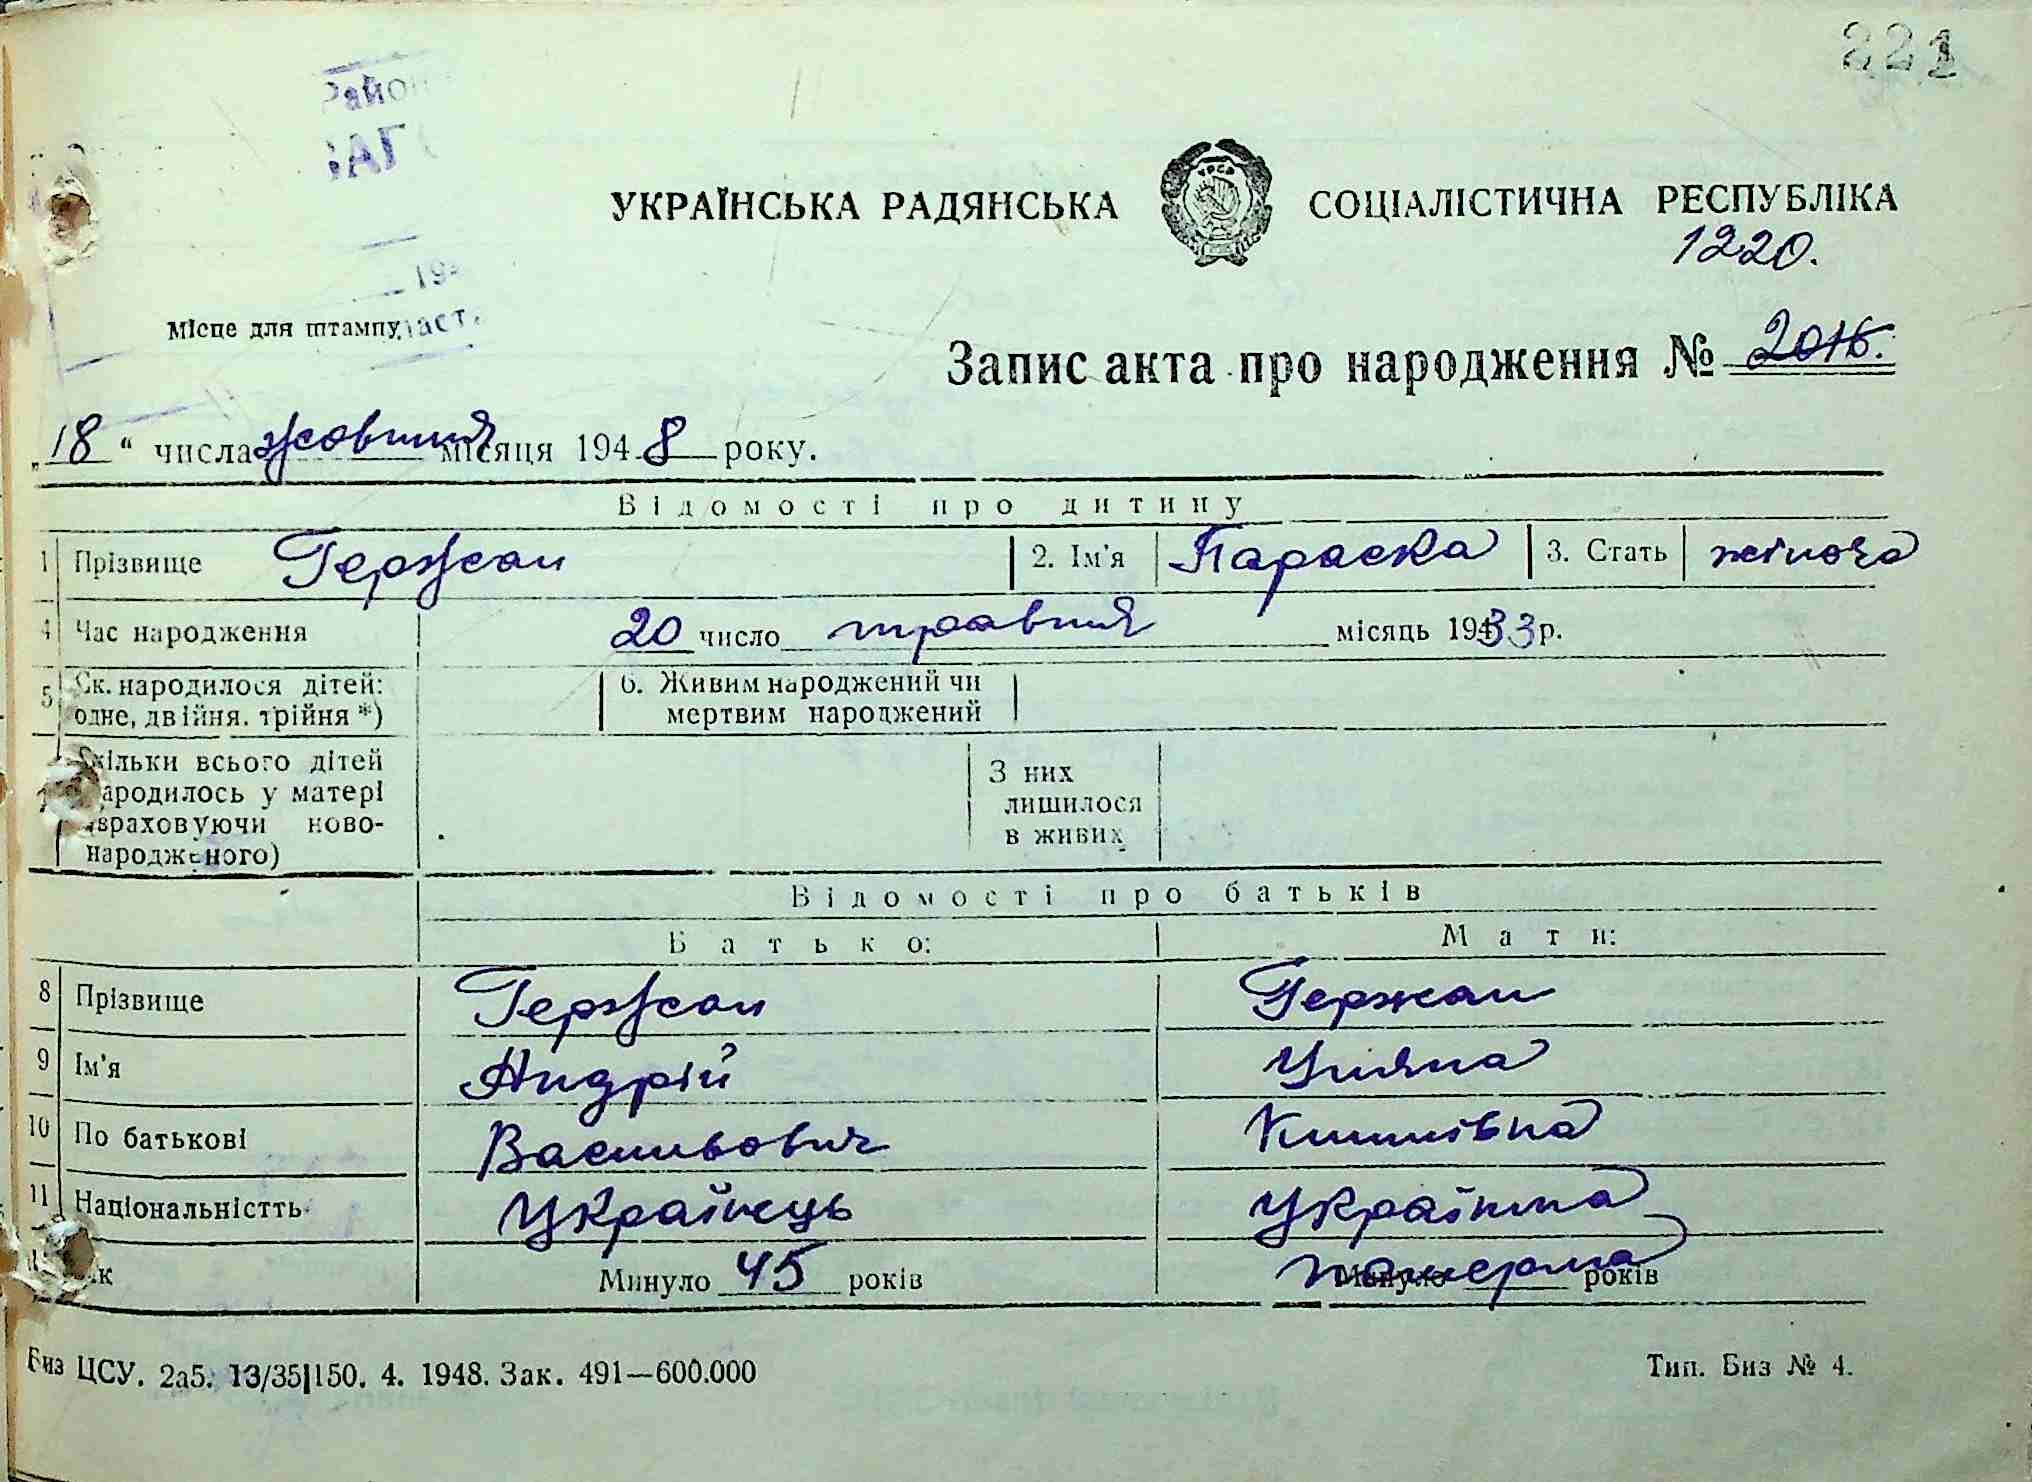 221
Район
ЗАГС
УКРАЇНСЬКА РАДЯНСЬКА СОЦІАЛІСТИЧНА РЕСПУБЛІКА
1220.
19
Місце для штампу
Запис акта про народження № 2016.
„18“ числа жовтня місяця 1948 року.
Відомості про дитину
1 Прізвище Гержан 2. Ім'я Параска 3. Стать жіноча
4 Час народження 20 число травня місяць 1933 р.
5 Ск. народилося дітей: 6. Живим народжений чи
одне, двійня, трійня *) мертвим народжений
7 Скільки всього дітей З них
народилось у матері лишилося
(враховуючи ново- в живих
народженого)
Відомості про батьків
Батько: Мати:
8 Прізвище Гержан Гержан
9 Ім'я Андрій Уляна
10 По батькові Васильович
11 Національністть Українець Українка
Минуло 45 років Минуло померла років
Биз ЦСУ. 2а5. 13/35|150. 4. 1948. Зак. 491—600.000 Тип. Биз № 4.